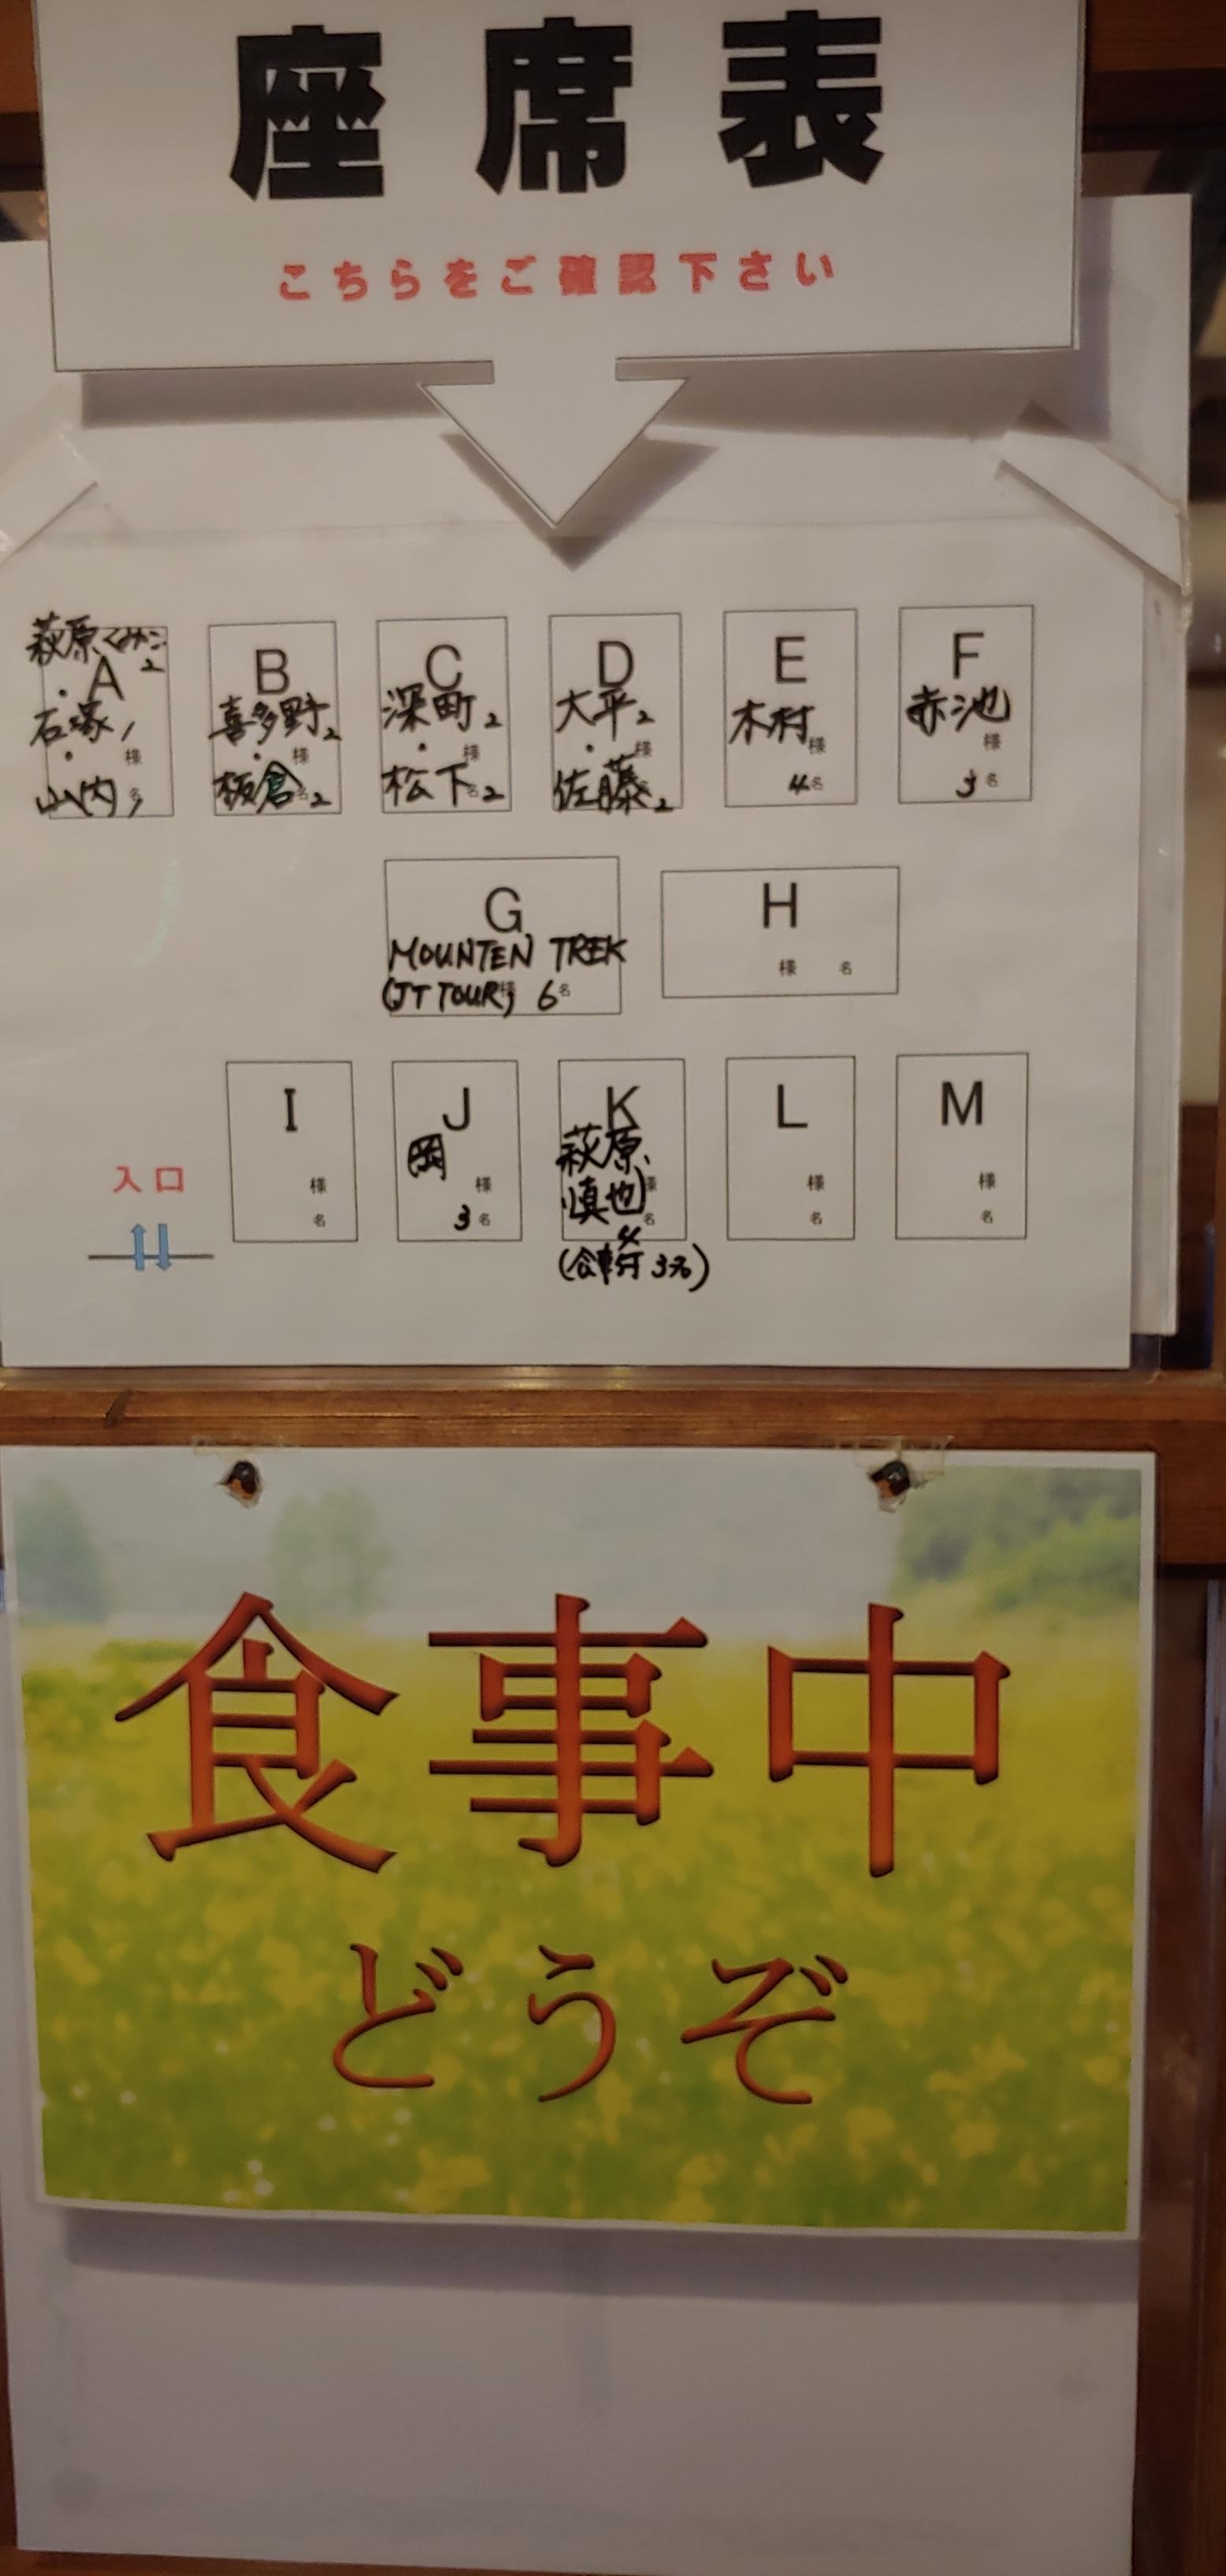 座席表
こちらをご確認下さい
萩原くみこ2
A
・
石塚1
様
・
山内1
名
B
喜多野2
・様
板倉2
名
C
深町2
・様
松下2
名
D
大平2
・様
佐藤2
名
E
木村様
4名
F
赤池
様
3名
G
MOUNTEN TREK
(JT TOUR)様 6名
H
様 名
I
様
名
J
岡
様
3名
K
萩原
慎也様
4名
3名)
L
様
名
M
様
名
入口
食事中
どうぞ